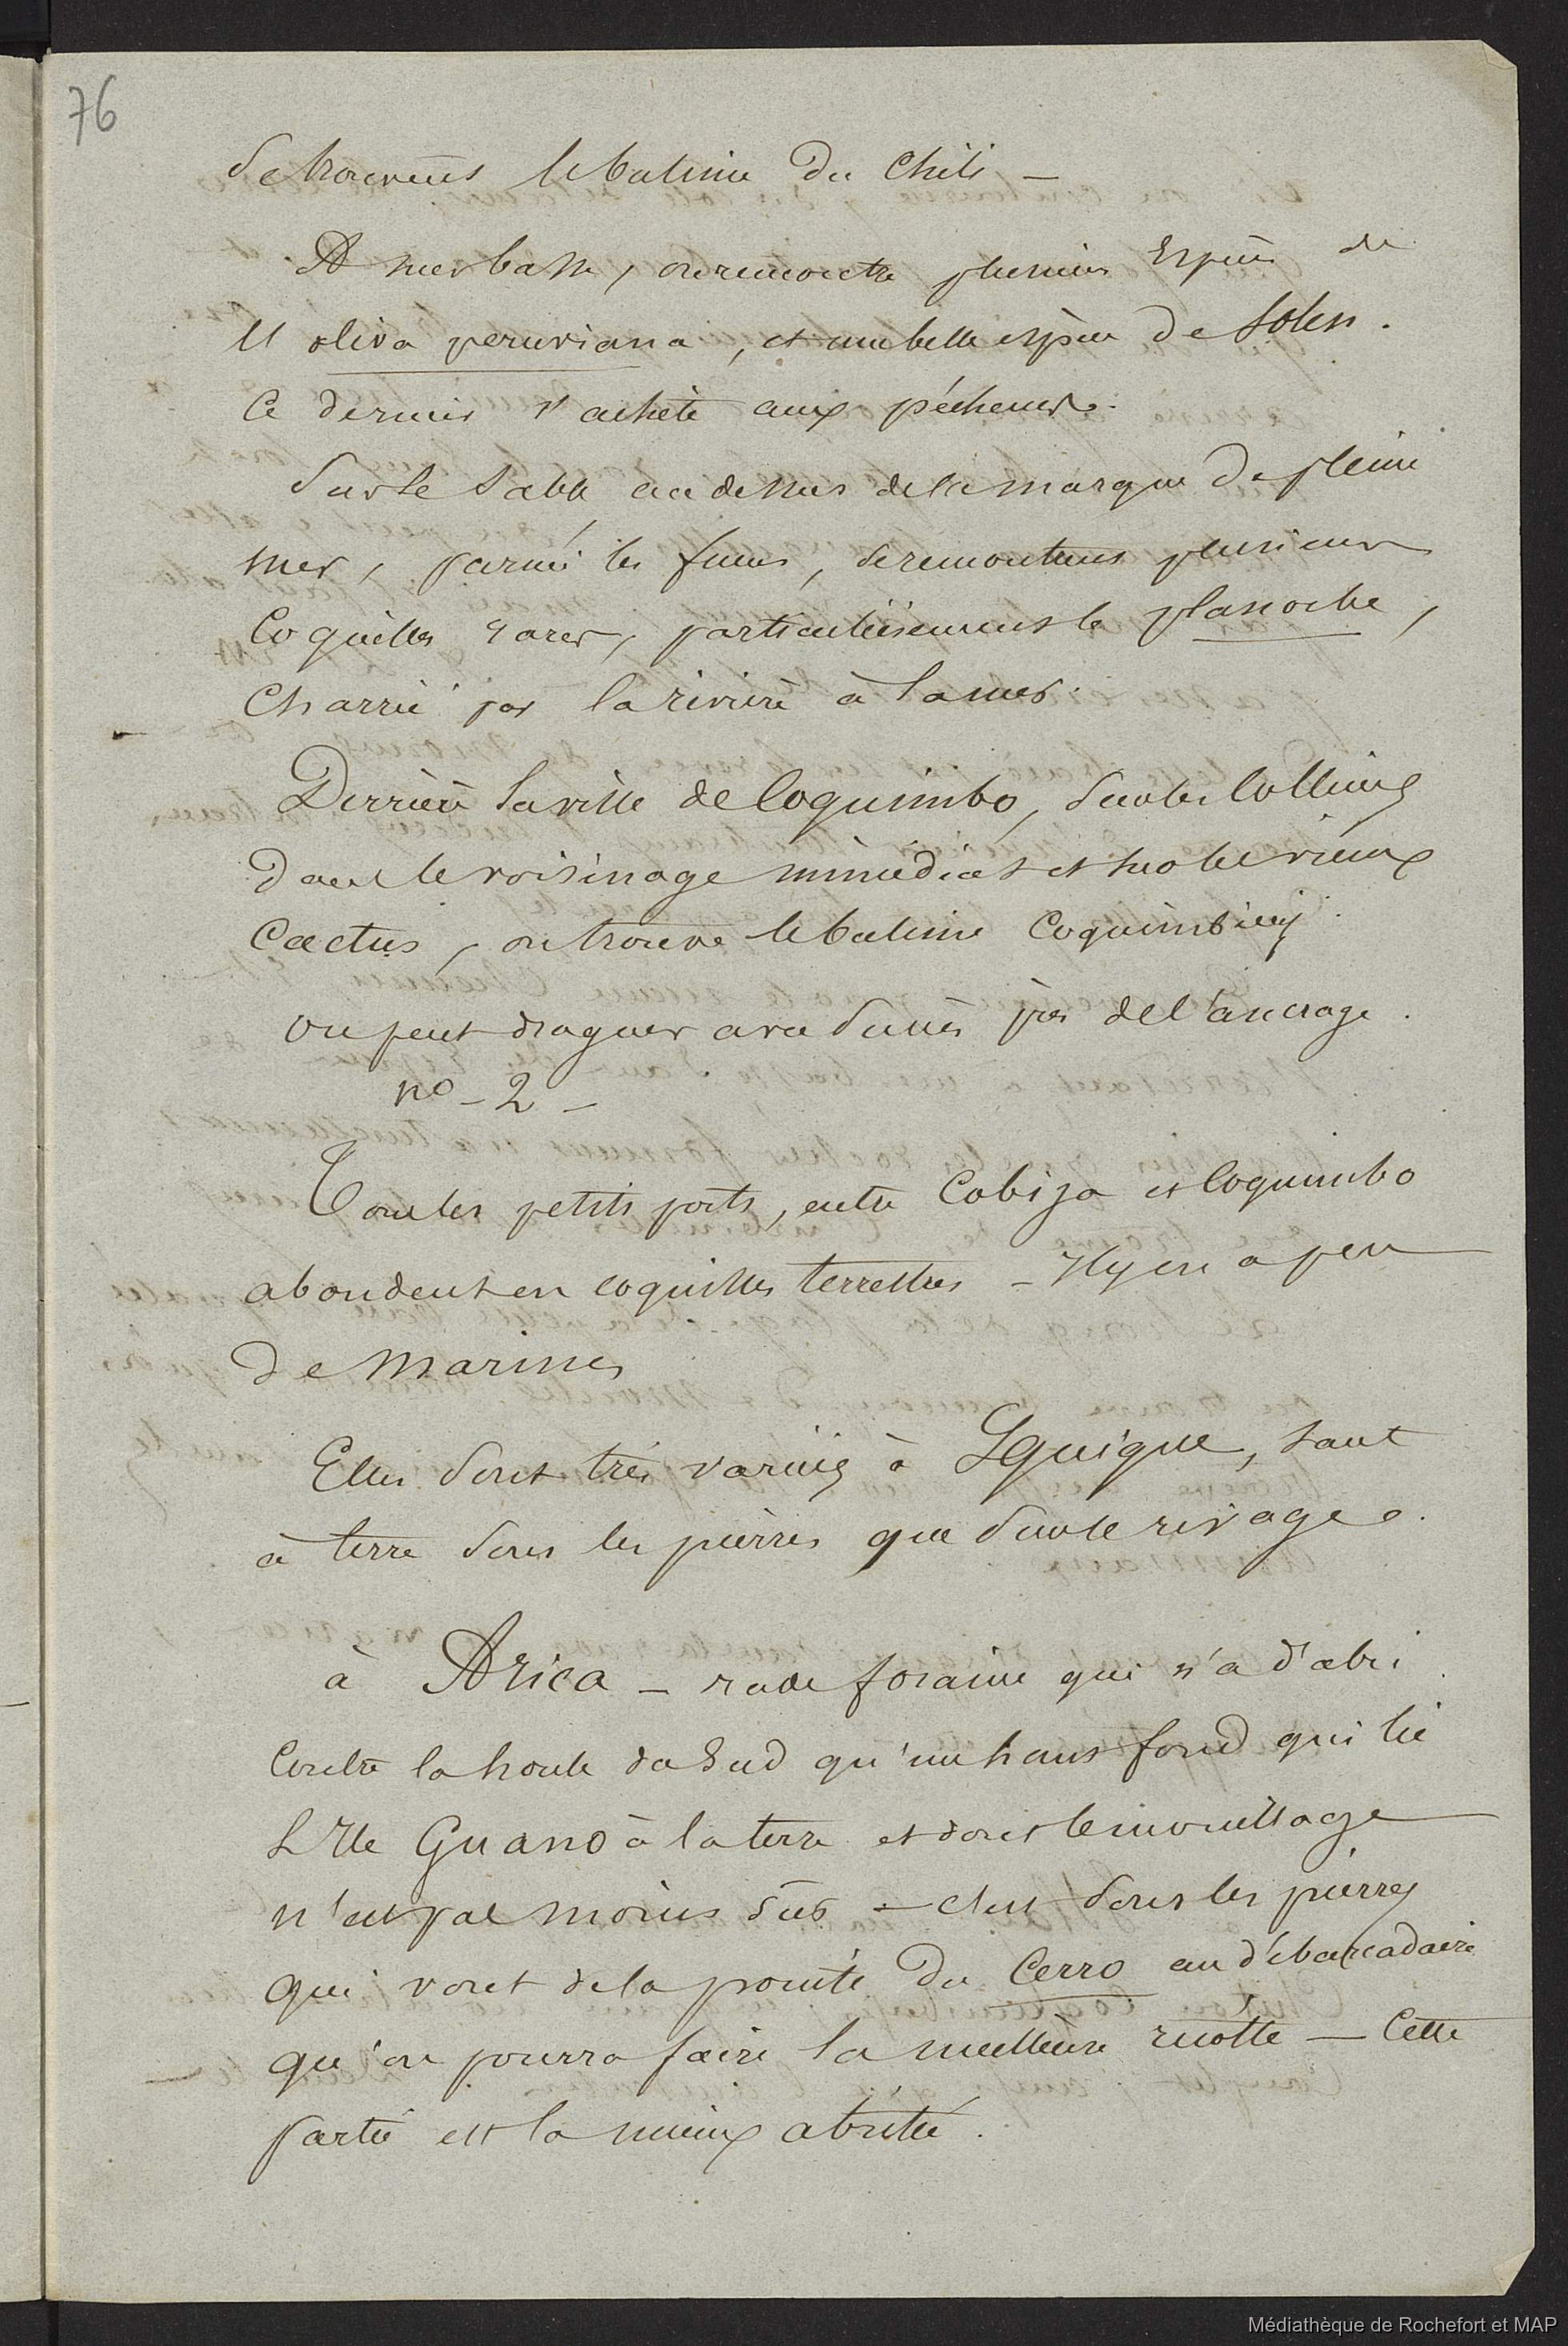 76
Se trouvent le bulime du Chili —
A mer basse, on rencontre plusieurs Espèces de
l'oliva peruviana, et une belle espèce de Solen.
Ce dernier s'achète aux pécheurs.
Sur le sable au dessus de la marque de pleine
mer, parmi les fucus, se rencontrent plusieurs
Coquilles rares, particulièrement le planorbe,
Charrié par la rivière à la mer.
Derrière la ville de Coquimbo, sur les Collines
dans le voisinage immédiat et sur les vieux
Cactus, on trouve le bulime Coquimbien
on peut draguer avec succès près de l'ancrage.
no - 2 -
Tous les petits ports, entre Cobija et Coquimbo
abondent en coquilles terrestres - Il y en a peu
de marines
Elles sont très variées à Iquique, tant
à terre sous les pierres que sur le rivage.
à Arica — rade foraine qui n'a d'abri
Contre la houle du Sud qu'un haut fond qui lie
L'Ile Guano à la terre et dont le mouillage
n'est pas moins sûr — c'est sous les pierres
qui vont de la pointe du Cerro au débarcadaire
qu'on pourra faire la meilleure récolte — Cette
partie est la mieux abritée.
Médiathèque de Rochefort et MAP